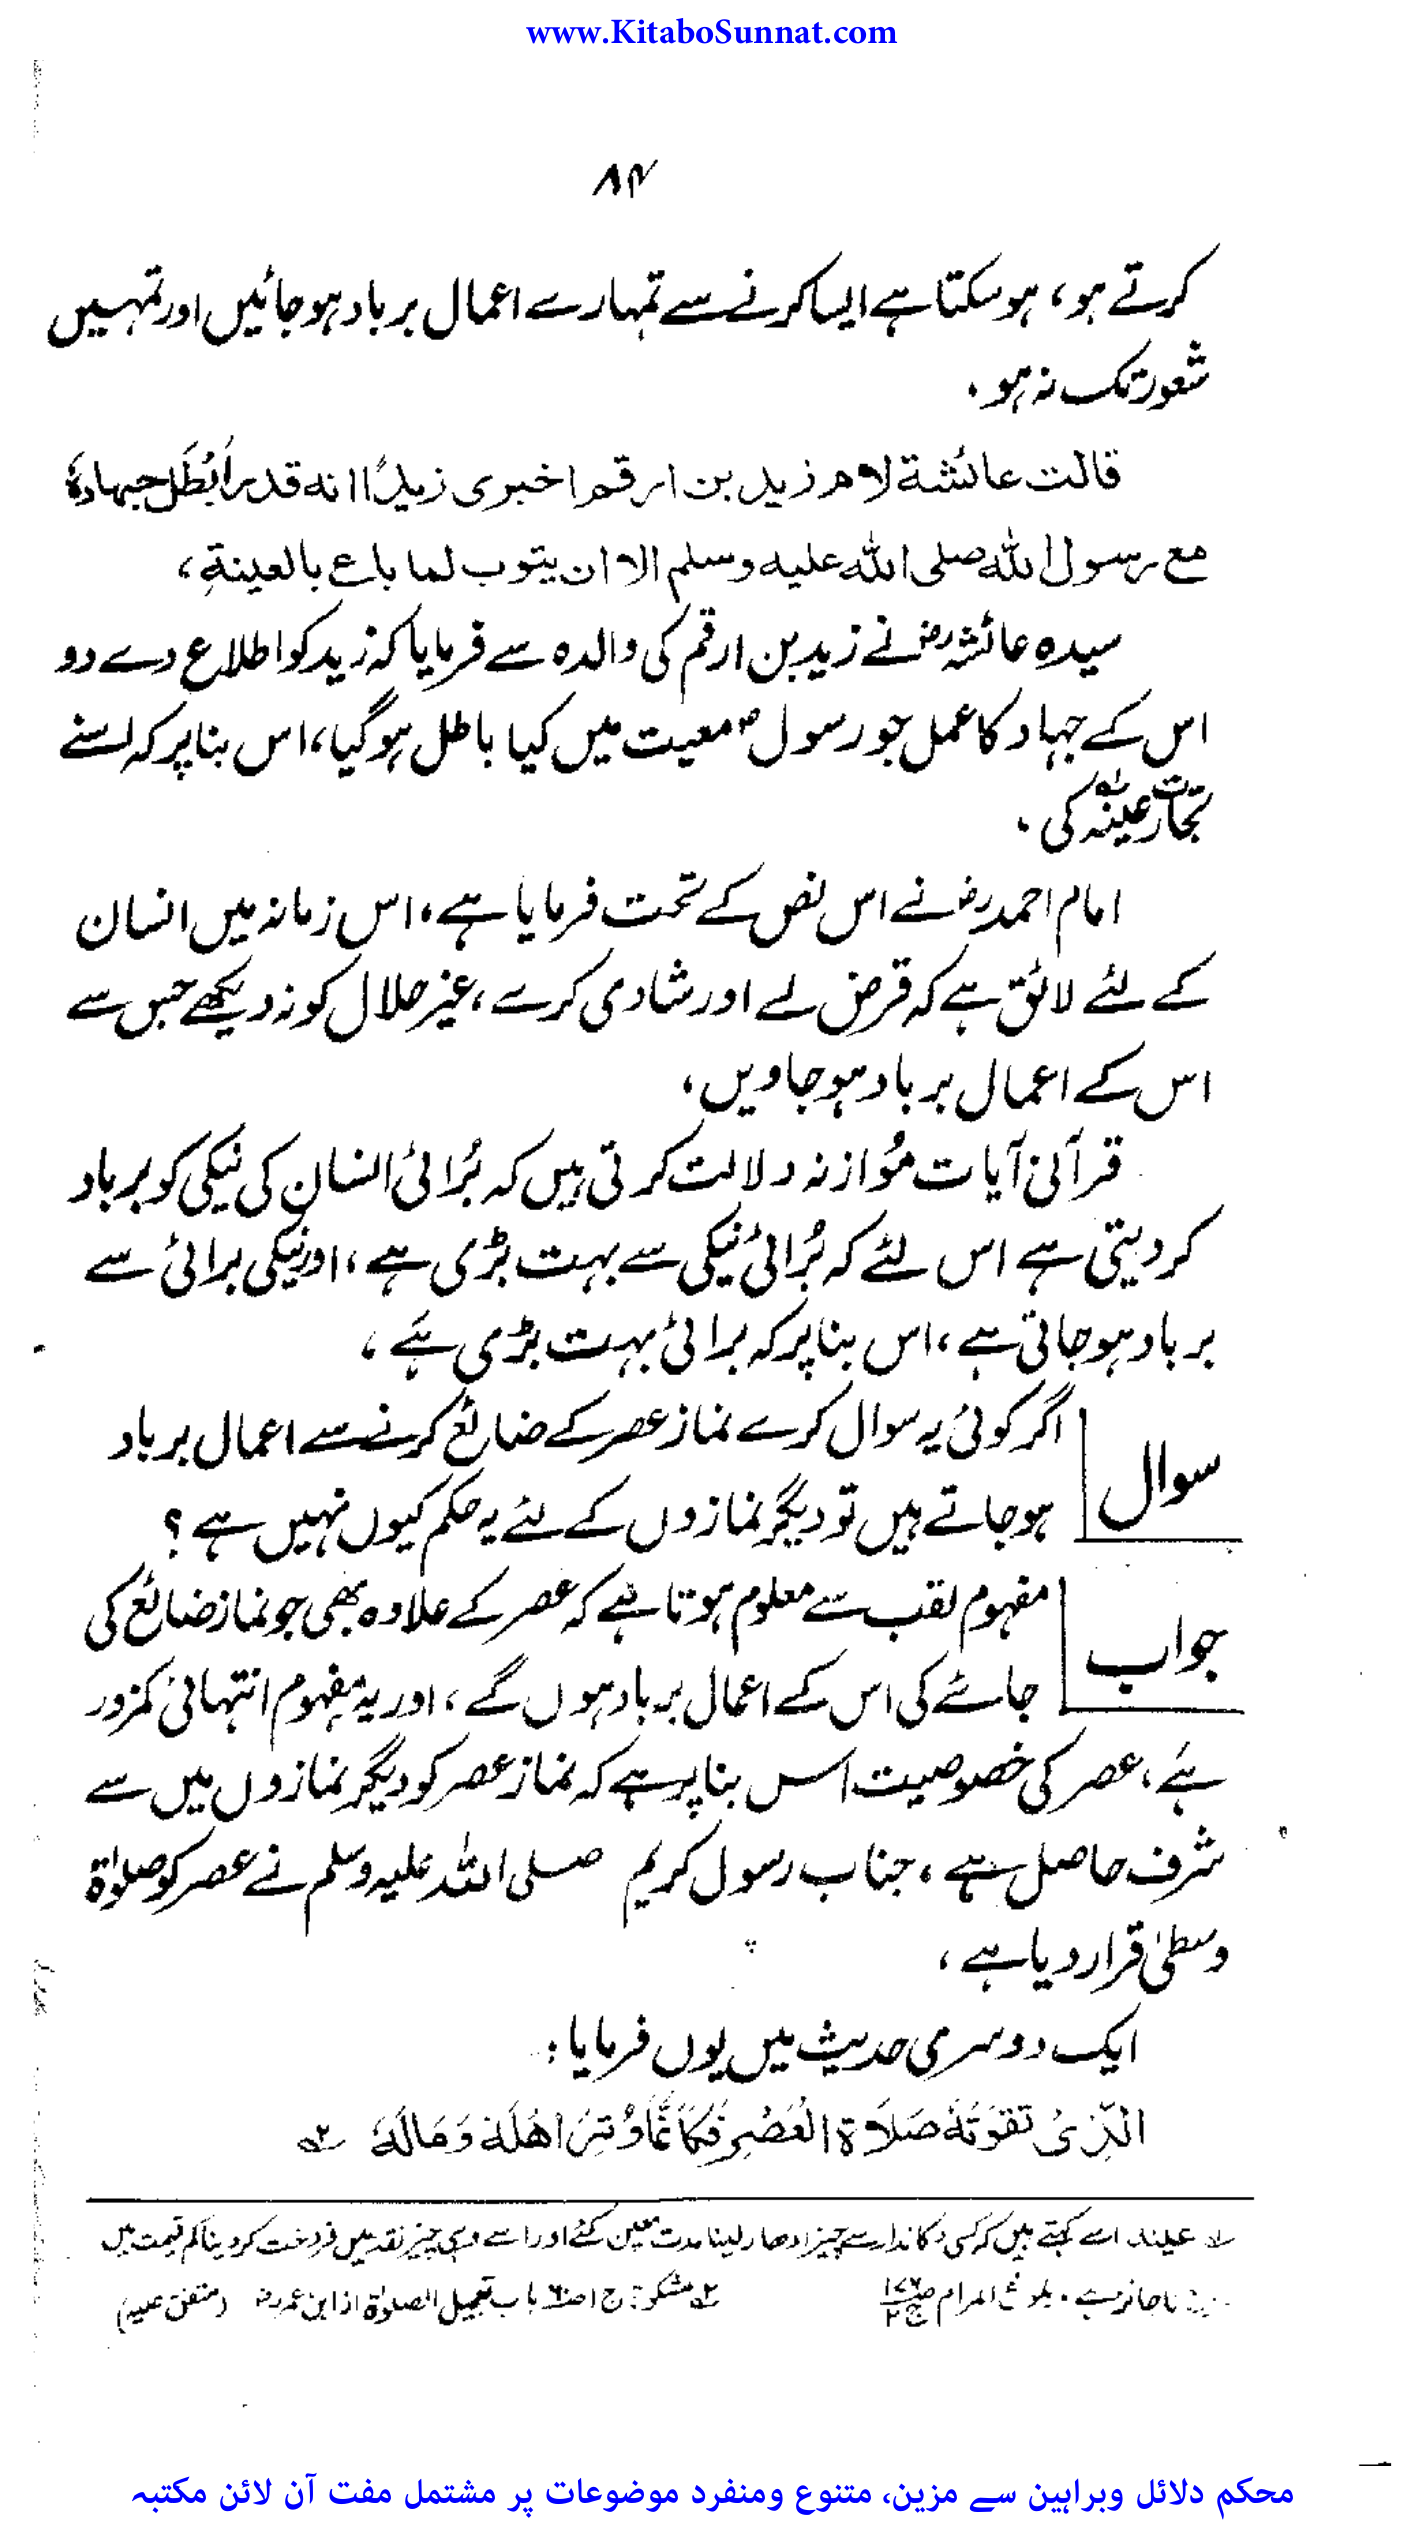 www.KitaboSunnat.com
۸۴
کرتے ہو، ہوسکتا ہے ایسا کرنے سے تمہارے اعمال برباد ہوجائیں اور تمہیں
شعور تک نہ ہو۔
قالت عائشة لام زید بن ارقم اخبری زیدًا انه قد ابطل جهاده
مع رسول الله صلی الله علیه وسلم الا ان یتوب لما باع بالعینة،
سیدہ عائشہؓ نے زید بن ارقم کی والدہ سے فرمایا کہ زید کو اطلاع دے دو
اس کے جہاد کا عمل جو رسولؐ معیت میں کیا باطل ہوگیا، اس بنا پر کہ اسنے
تجارت عینہ لہ کی۔
امام احمدؓ نے اس نص کے تحت فرمایا ہے، اس زمانہ میں انسان
کے لئے لائق ہے کہ قرض لے اور شادی کرے، غیر حلال کو نہ دیکھے جس سے
اس کے اعمال برباد ہوجاویں،
قرآنی آیات مُوازنہ دلالت کرتی ہیں کہ بُرائی انسان کی نیکی کو برباد
کردیتی ہے اس لئے کہ بُرائی نیکی سے بہت بڑی ہے، اور نیکی برائی سے
برباد ہوجاتی ہے، اس بنا پر کہ برائی بہت بڑی ہے،
سوال اگر کوئی یہ سوال کرے نماز عصر کے ضائع کرنے سے اعمال برباد
ہوجاتے ہیں تو دیگر نمازوں کے لئے یہ حکم کیوں نہیں ہے؟
جواب مفہوم لقب سے معلوم ہوتا ہے کہ عصر کے علاوہ بھی جو نماز ضائع کی
جائے گی اس کے اعمال برباد ہوں گے، اور یہ مفہوم انتہائی کمزور
ہے، عصر کی خصوصیت اس بنا پر ہے کہ نماز عصر کو دیگر نمازوں میں سے
شرف حاصل ہے، جناب رسول کریم صلی اللہ علیہ وسلم نے عصر کو صلوٰۃ
وسطیٰ قرار دیا ہے،
ایک دوسری حدیث میں یوں فرمایا:
الَّذِیْ تَفُوْتُهٗ صَلَاةُ الْعَصْرِ فَکَاَنَّمَا وُتِرَ اَهْلَهٗ وَمَالَهٗ ۲ه
لہ عینہ اسے کہتے ہیں کہ کسی دکاندار سے چیز ادھار لینا مدت معین کئے اور اسے وہی چیز نقد میں فروخت کردینا کم قیمت میں
ناجائز ہے۔ بلوغ المرام ج ۲ ۲ه مشکوٰۃ ج ۱ ص ۶۰ باب تعجیل الصلوٰۃ از ابن عمرؓ (متفق علیہ)
محکم دلائل وبراہین سے مزین، متنوع ومنفرد موضوعات پر مشتمل مفت آن لائن مکتبہ